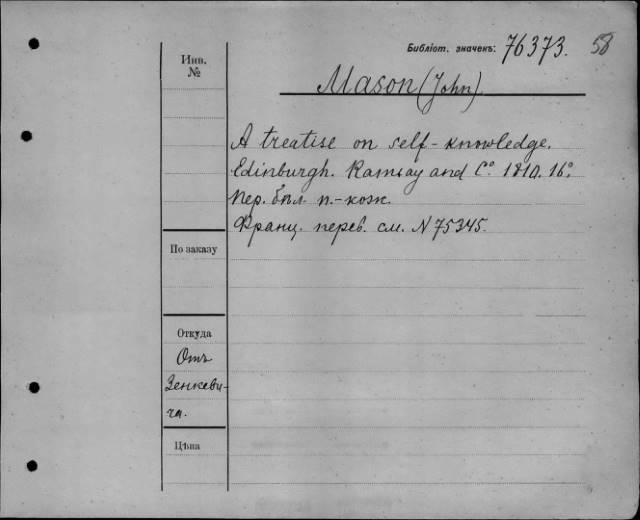 Библіот. значекъ: 76373. 58
Инв.
№
Mason (John).
A treatise on self-knowledge.
Edinburgh. Ramsay and Cº. 1810. 16º.
Пер. был. п.-кож.
Франц. перев. см. N 75345.
По заказу
Откуда
Отъ
Зенкеви-
ча.
Цѣна